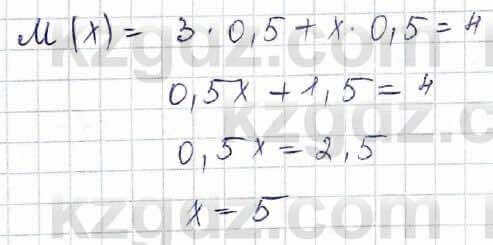 M(x) = 3 · 0,5 + x · 0,5 = 4
0,5x + 1,5 = 4
0,5x = 2,5
x = 5
kzgdz.com
kzgdz.com
kzgdz.com